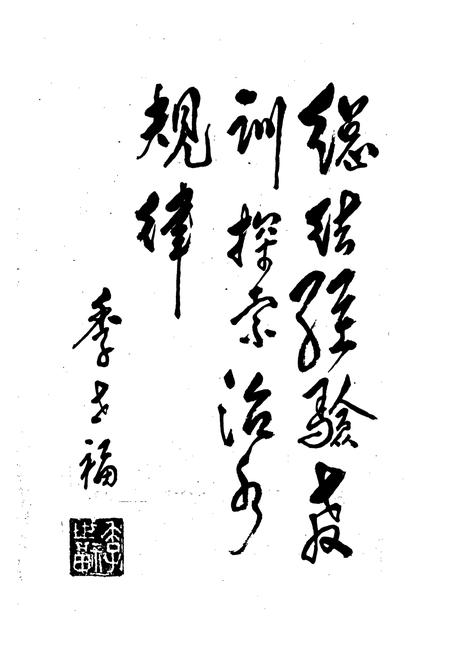 總結經驗教
訓探索治水
規律
季世福